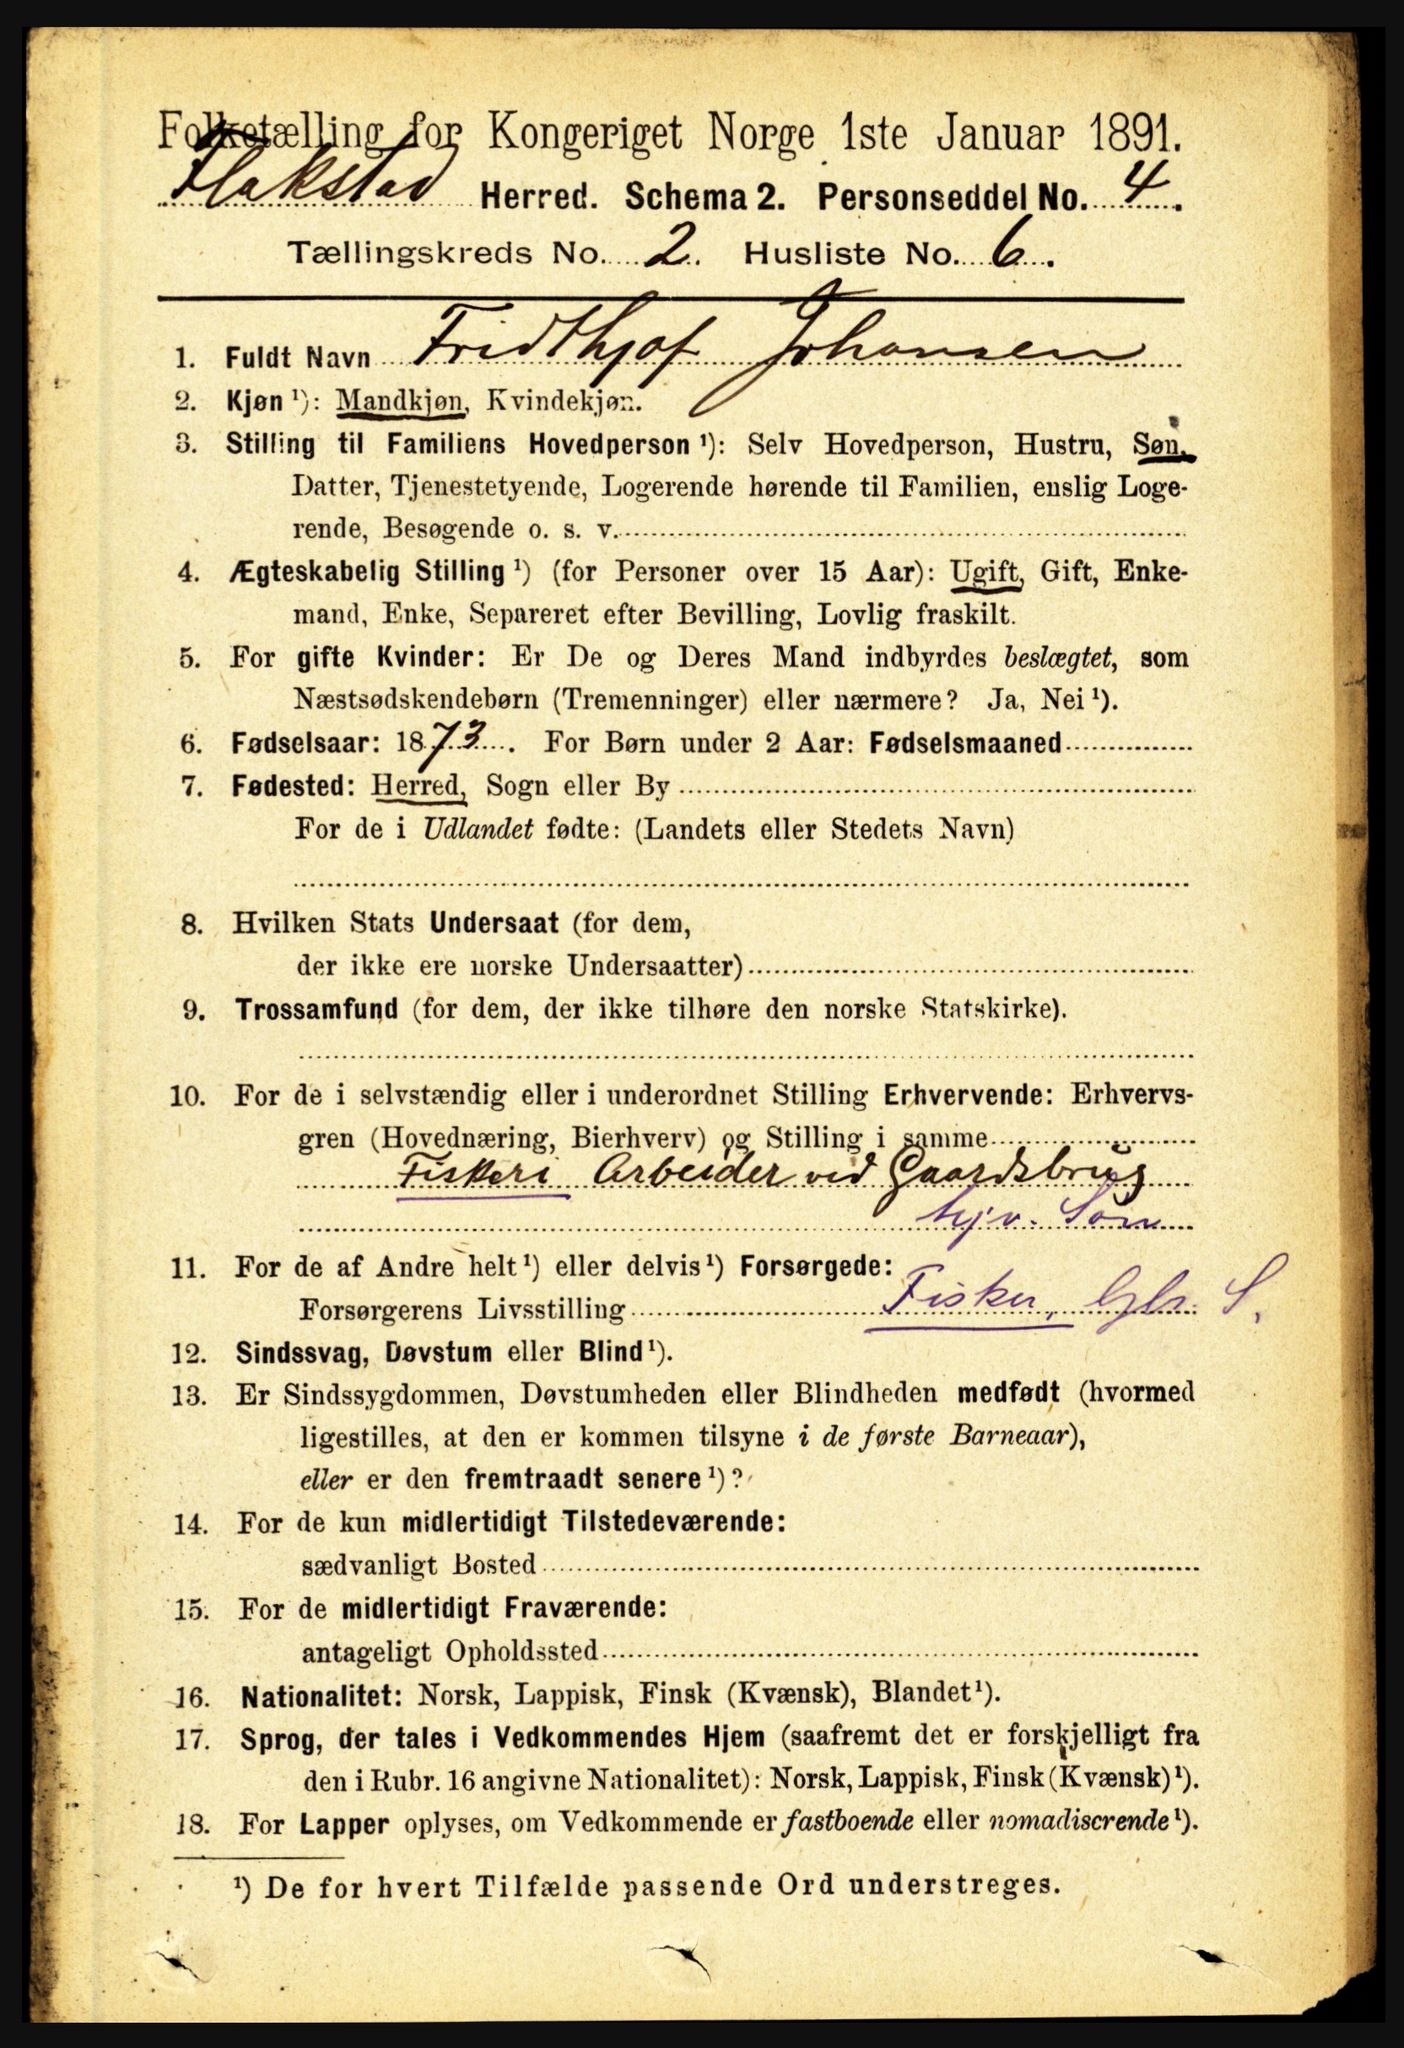 Folketælling for Kongeriget Norge 1ste Januar 1891.
Flakstad Herred. Schema 2. Personseddel No. 4.
Tællingskreds No. 2. Husliste No. 6.
1. Fuldt Navn Fridthjof Johansen
2. Kjøn ¹): Mandkjøn, Kvindekjøn.
3. Stilling til Familiens Hovedperson ¹): Selv Hovedperson, Hustru, Søn,
Datter, Tjenestetyende, Logerende hørende til Familien, enslig Loge-
rende, Besøgende o. s. v.
4. Ægteskabelig Stilling ¹) (for Personer over 15 Aar): Ugift, Gift, Enke-
mand, Enke, Separeret efter Bevilling, Lovlig fraskilt.
5. For gifte Kvinder: Er De og Deres Mand indbyrdes beslægtet, som
Næstsødskendebørn (Tremenninger) eller nærmere? Ja, Nei ¹).
6. Fødselsaar: 1873. For Børn under 2 Aar: Fødselsmaaned
7. Fødested: Herred, Sogn eller By
For de i Udlandet fødte: (Landets eller Stedets Navn)
8. Hvilken Stats Undersaat (for dem,
der ikke ere norske Undersaatter)
9. Trossamfund (for dem, der ikke tilhøre den norske Statskirke).
10. For de i selvstændig eller i underordnet Stilling Erhvervende: Erhvervs-
gren (Hovednæring, Bierhverv) og Stilling i samme
Fiskeri Arbeider ved Gaardsbrug
hjv. Søn
11. For de af Andre helt ¹) eller delvis ¹) Forsørgede:
Forsørgerens Livsstilling Fisker, Gbr. S.
12. Sindssvag, Døvstum eller Blind ¹).
13. Er Sindssygdommen, Døvstumheden eller Blindheden medfødt (hvormed
ligestilles, at den er kommen tilsyne i de første Barneaar),
eller er den fremtraadt senere ¹)?
14. For de kun midlertidigt Tilstedeværende:
sædvanligt Bosted
15. For de midlertidigt Fraværende:
antageligt Opholdssted
16. Nationalitet: Norsk, Lappisk, Finsk (Kvænsk), Blandet ¹).
17. Sprog, der tales i Vedkommendes Hjem (saafremt det er forskjelligt fra
den i Rubr. 16 angivne Nationalitet): Norsk, Lappisk, Finsk (Kvænsk) ¹).
18. For Lapper oplyses, om Vedkommende er fastboende eller nomadiserende ¹).
¹) De for hvert Tilfælde passende Ord understreges.